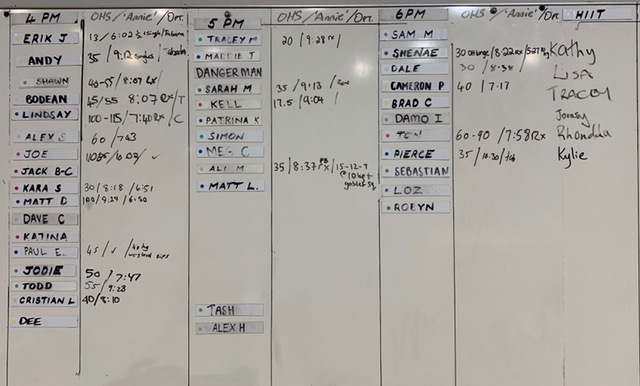 4 PM OHS/'Annie'/Ort.
ERIK J 13/6:02
ANDY 35/9:12 singles/
SHAWN 40-55/8:07 RX/
BODEAN 45/55 8:07 RX/T
LINDSAY 100-115/7:40 RX/C
ALEX S 60/7:43
JOE
JACK B-C
KARA S 30/8:18/6:51
MATT D 100/9:29/6:50
DAVE C
KATINA
PAUL E. 45/
JODIE 50/7:47
TODD 55/9:28
CRISTIAN L 40/8:10
DEE
5 PM OHS/'Annie'/Ort.
TRALEY M 20/9:28 rx/
MATTIE J
DANGERMAN
SARAH M 35/9:13/
KELL 17.5/9:04/
PATRINA K
SIMON
MEG C
ALI M 35/8:37 PB RX/15-12-9
@10kg +
goblet sq
MATT L.
TASH
ALEX H
6PM OHS/'Annie'/Ort.
SAM M
SHENAE 30
DALE 30/8:38/
CAMERON P 40/7:17
BRAD C
DAMO I
TOM 60-90/7:58 Rx
PIERCE 35/10:30/
SEBASTIAN
LOZ
ROBYN
HIIT
Kathy
LISA
TRACEY
Rhondda
Kylie